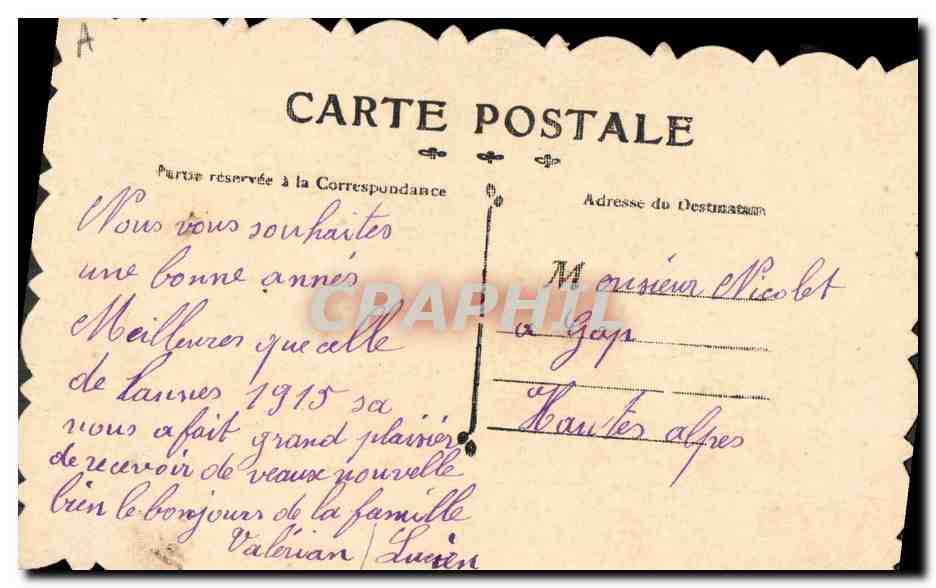 A
CARTE POSTALE
Partie réservée à la Correspondance
Adresse du Destinataire
Nous vous souhaites
une bonne annés
Meilleures que celle
de lannes 1915 sa
vous a fait grand plaisiér
de recevoir de veaux nouvelle
bien le bonjours de la famille
Valérian / Lucien
Monsieur Nicolet
a Gap
Hautes alpes
CRAPHIL